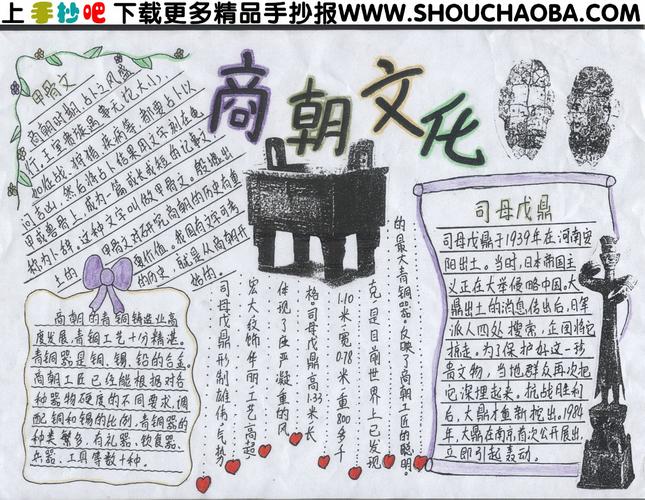 上 手抄吧 下载更多精品手抄报WWW.SHOUCHAOBA.COM
商朝文化
甲骨文
商朝时期,占卜之风盛
行,王室贵族遇事无论大小,
如征战、狩猎、疾病等,都要占卜以
问吉凶,然后将占卜结果用文字刻在龟
甲或兽骨上,成为一篇或长或短的记事文,
称为卜辞。这种文字叫做甲骨文。殷墟出
土的甲骨文对研究商朝的历史有重
要价值。我国有文字可考
的历史,就是从商朝开
始的。
商朝的青铜铸造业高
度发展,青铜工艺十分精湛。
青铜器是铜、锡、铅的合金。
商朝工匠已经能根据对各
种器物硬度的不同要求,调
配铜和锡的比例,青铜器的
种类繁多,有礼器、饮食器、
兵器、工具等数十种。
司母戊鼎形制雄伟,气势
宏大,纹饰华丽,工艺高超,
体现了庄严凝重的风
格。司母戊鼎高1.33米、长
1.10米、宽0.78米、重800多千
克,是目前世界上已发现
的最大青铜器。反映了商朝工匠的聪明。
司母戊鼎
司母戊鼎于1939年在河南安
阳出土。当时,日本帝国主
义正在大举侵略中国,大
鼎出土的消息传出后,日军
派人四处搜索,企图将它
掠走。为了保护好这一珍
贵文物,当地群众再次把
它深埋起来。抗战胜利
后,大鼎才重新挖出,1984
年,大鼎在南京首次公开展出,
立即引起轰动。